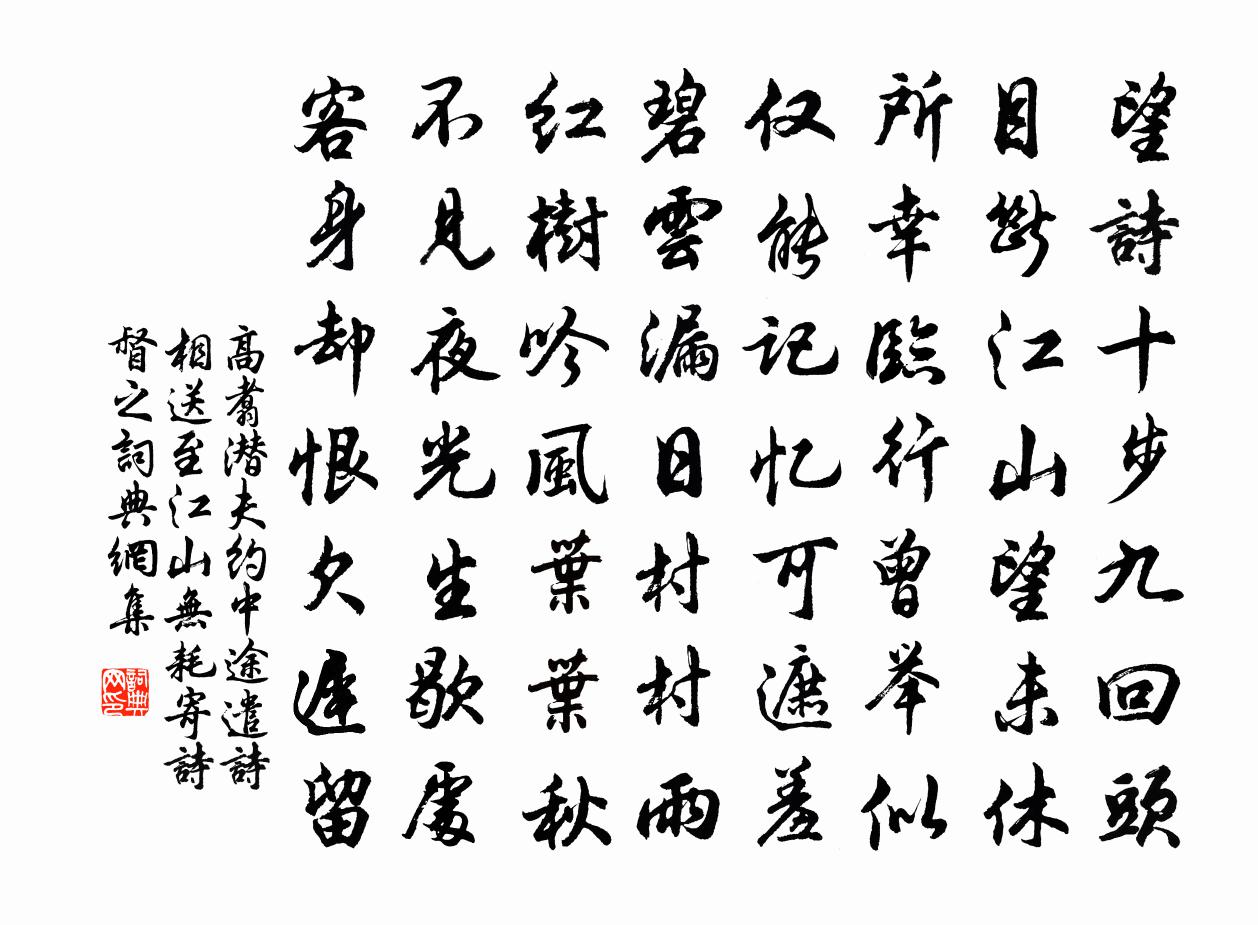 望詩十步九回頭
目斷江山望未休
所幸臨行曾举似
仅能记忆可遮羞
碧雲漏日村村雨
紅樹吟風葉葉秋
不見夜光生歇處
客身却恨欠遲留
高翥潜夫约中途遣詩
相送至江山無耗寄詩
督之詞典網集
詞典网印